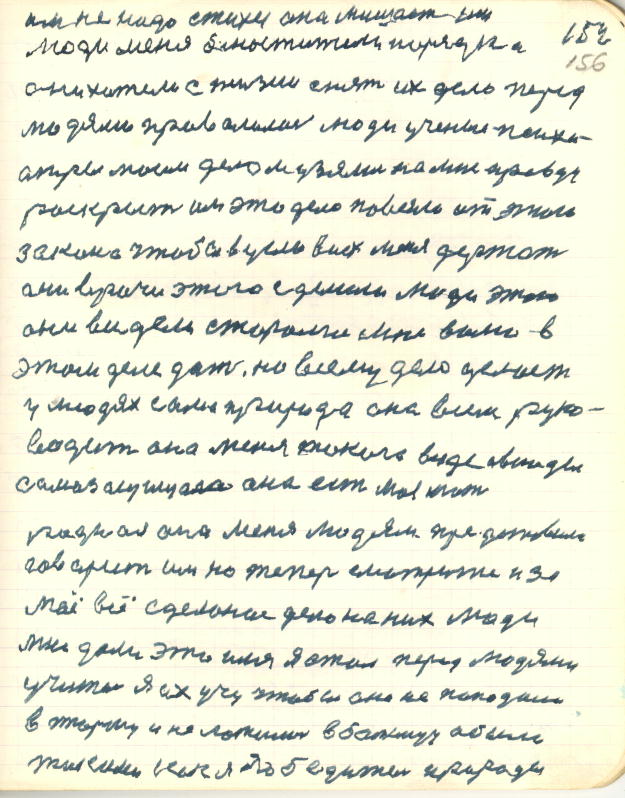 им не надо стихи она мишает им
152
люди меня блюстители порядка
156
они хотели с жизни снят их дело перед
людями провалилос люди учение психи-
атрии моим делом узяли на мне правду
роскрыт им это дело повеяло от этого
закона чтобы в углы всех меня держат
они врачи этого сделали люди этого
они видели старалис мне волю в
этом деле дат, но всему дело делает
у людях сама природа она всем руко-
водит она меня такого виде
она ест моя мат
родная она меня людям
говорит им но тепер смотрите и за
маё всё сделоное дело на них люди
мне дали это имя я стал перед людями
учител я их учу чтобы они не попадали
в тюрму и не ложилис в болницу а были
такими как я Победител природы